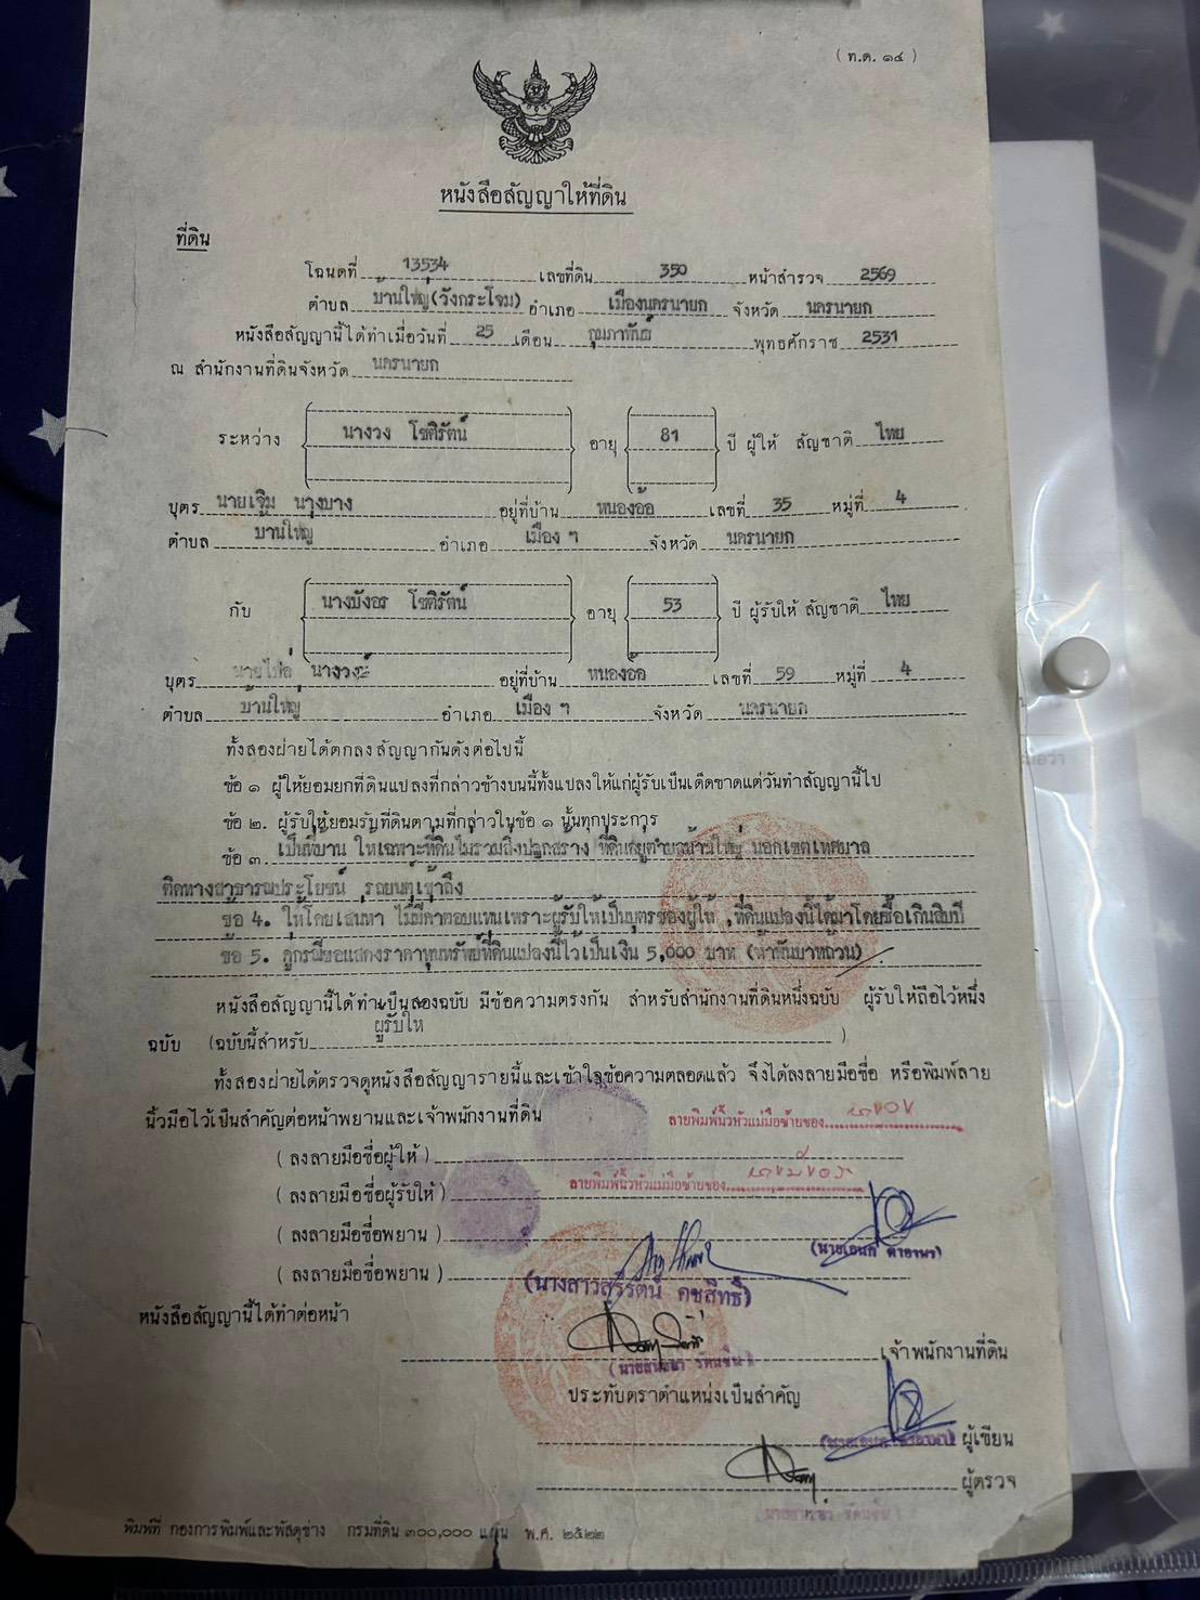 ( ท.ด. ๑๔ )
หนังสือสัญญาให้ที่ดิน
ที่ดิน
โฉนดที่ 13534 เลขที่ดิน 350 หน้าสำรวจ 2569
ตำบล บ้านใหญ่(วังกระโจม) อำเภอ เมืองนครนายก จังหวัด นครนายก
หนังสือสัญญานี้ได้ทำเมื่อวันที่ 25 เดือน กุมภาพันธ์ พุทธศักราช 2531
ณ สำนักงานที่ดินจังหวัด นครนายก
ระหว่าง นางวง โชติรัตน์ อายุ 81 ปี ผู้ให้ สัญชาติ ไทย
บุตร นายเจิม นางบาง อยู่ที่บ้าน หนองอ้อ เลขที่ 35 หมู่ที่ 4
ตำบล บ้านใหญ่ อำเภอ เมือง ฯ จังหวัด นครนายก
กับ นางบังอร โชติรัตน์ อายุ 53 ปี ผู้รับให้ สัญชาติ ไทย
บุตร นางวงษ์ อยู่ที่บ้าน หนองอ้อ เลขที่ 59 หมู่ที่ 4
ตำบล บ้านใหญ่ อำเภอ เมือง ฯ จังหวัด นครนายก
ทั้งสองฝ่ายได้ตกลงสัญญากันดังต่อไปนี้
ข้อ ๑ ผู้ให้ยอมยกที่ดินแปลงที่กล่าวข้างบนนี้ทั้งแปลงให้แก่ผู้รับเป็นเด็ดขาดแต่วันทำสัญญานี้ไป
ข้อ ๒. ผู้รับให้ยอมรับที่ดินตามที่กล่าวในข้อ ๑ นั้นทุกประการ
ข้อ ๓. เป็นที่บ้าน ให้เฉพาะที่ดินไม่รวมสิ่งปลูกสร้าง ที่ดินอยู่ตำบลบ้านใหญ่ นอกเขตเทศบาล
ติดทางสาธารณประโยชน์ รถยนต์เข้าถึง
ข้อ 4. ให้โดยเสน่หา ไม่มีค่าตอบแทนเพราะผู้รับให้เป็นบุตรของผู้ให้ ,ที่ดินแปลงนี้ได้มาโดยซื้อเกินสิบปี
ข้อ 5. คู่กรณีขอแสดงราคาทุนทรัพย์ที่ดินแปลงนี้ไว้เป็นเงิน 5,000 บาท (ห้าพันบาทถ้วน)
หนังสือสัญญานี้ได้ทำเป็นสองฉบับ มีข้อความตรงกัน สำหรับสำนักงานที่ดินหนึ่งฉบับ ผู้รับให้ถือไว้หนึ่ง
ฉบับ (ฉบับนี้สำหรับ ผู้รับให้ )
ทั้งสองฝ่ายได้ตรวจดูหนังสือสัญญารายนี้และเข้าใจข้อความตลอดแล้ว จึงได้ลงลายมือชื่อ หรือพิมพ์ลาย
นิ้วมือไว้เป็นสำคัญต่อหน้าพยานและเจ้าพนักงานที่ดิน ลายพิมพ์นิ้วหัวแม่มือซ้ายของ นางวง
( ลงลายมือชื่อผู้ให้ )
( ลงลายมือชื่อผู้รับให้ ) ลายพิมพ์นิ้วหัวแม่มือซ้ายของ นางบังอร
( ลงลายมือชื่อพยาน )
( ลงลายมือชื่อพยาน ) (นางสาวสุรีรัตน์ คชสิทธิ์)
หนังสือสัญญานี้ได้ทำต่อหน้า
เจ้าพนักงานที่ดิน
ประทับตราตำแหน่งเป็นสำคัญ
ผู้เขียน
ผู้ตรวจ
พิมพ์ที่ กองการพิมพ์และพัสดุช่าง กรมที่ดิน ๓๐๐,๐๐๐ แผ่น พ.ศ. ๒๕๒๒